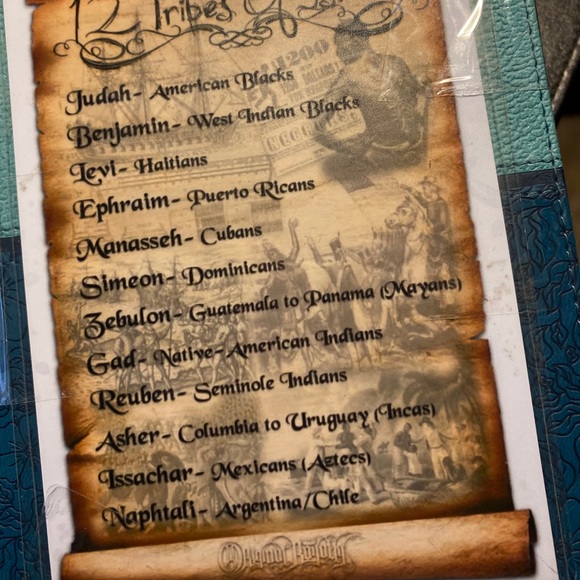 12 Tribes Of
Judah- American Blacks
Benjamin- West Indian Blacks
Levi- Haitians
Ephraim- Puerto Ricans
Manasseh- Cubans
Simeon- Dominicans
Zebulon- Guatemala to Panama (Mayans)
Gad- Native-American Indians
Reuben- Seminole Indians
Asher- Columbia to Uruguay (Incas)
Issachar- Mexicans (Aztecs)
Naphtali- Argentina/Chile